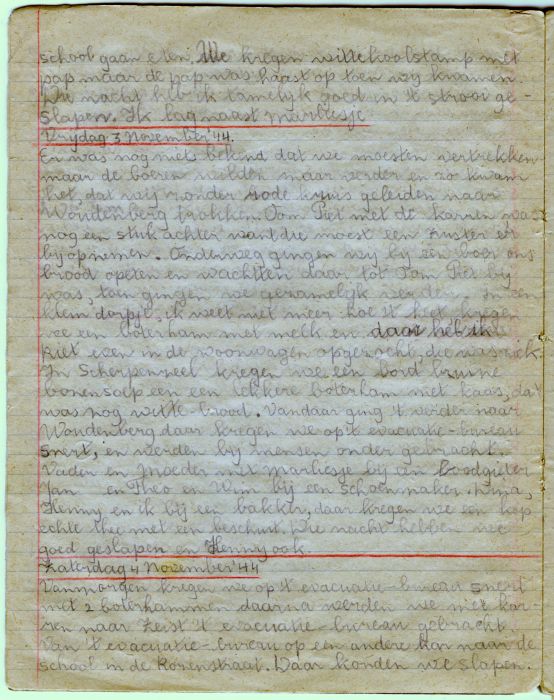 school gaan eten. We kregen wittekoolstamp met
pap maar de pap was haast op toen wij kwamen.
Die nacht heb ik tamelijk goed in 't stroo ge-
slapen. Ik lag naast Marliesje
Vrijdag 3 November '44.
En was nog niets bekend dat we moesten vertrekken
maar de boeren wilden maar verder en zo kwam
het, dat wij zonder rode kruis geleiden naar
Woudenberg trokken. Oom Piet met de karren was
nog een stuk achter want die moest een zuster er
bij opnemen. Onderweg gingen wij bij een boer ons
brood opeten en wachtten daar tot Oom Piet bij
was, toen gingen we gezamelijk verder. In een
klein dorpje, ik weet niet meer hoe 't heet kregen
we een boterham met melk en daar heb ik
Riet even in de woonwagen opgezocht, die was ziek.
In Scherpenzeel kregen we een bord bruine
bonensoep een een lekkere boterham met kaas, dat
was nog witte-brood. Vandaar ging 't verder naar
Woudenberg daar kregen we op 't evacuatie-bureau
snert, en werden bij mensen onder gebracht.
Vader en Moeder met Marliesje bij een loodgieter
Jan en Theo en Wim bij een schoenmaker.
Henny en ik bij een bakker, daar kregen we een kop
echte thee met een beschuit. Die nacht hebben we
goed geslapen en Henny ook.
Zaterdag 4 November '44
Vanmorgen kregen we op 't evacuatie-bureau snert
met 2 boterhammen daarna werden we met kar-
ren naar Zeist 't evacuatie-bureau gebracht.
Van 't evacuatie-bureau op een andere kar naar de
school in de Rozenstraat. Daar konden we slapen.